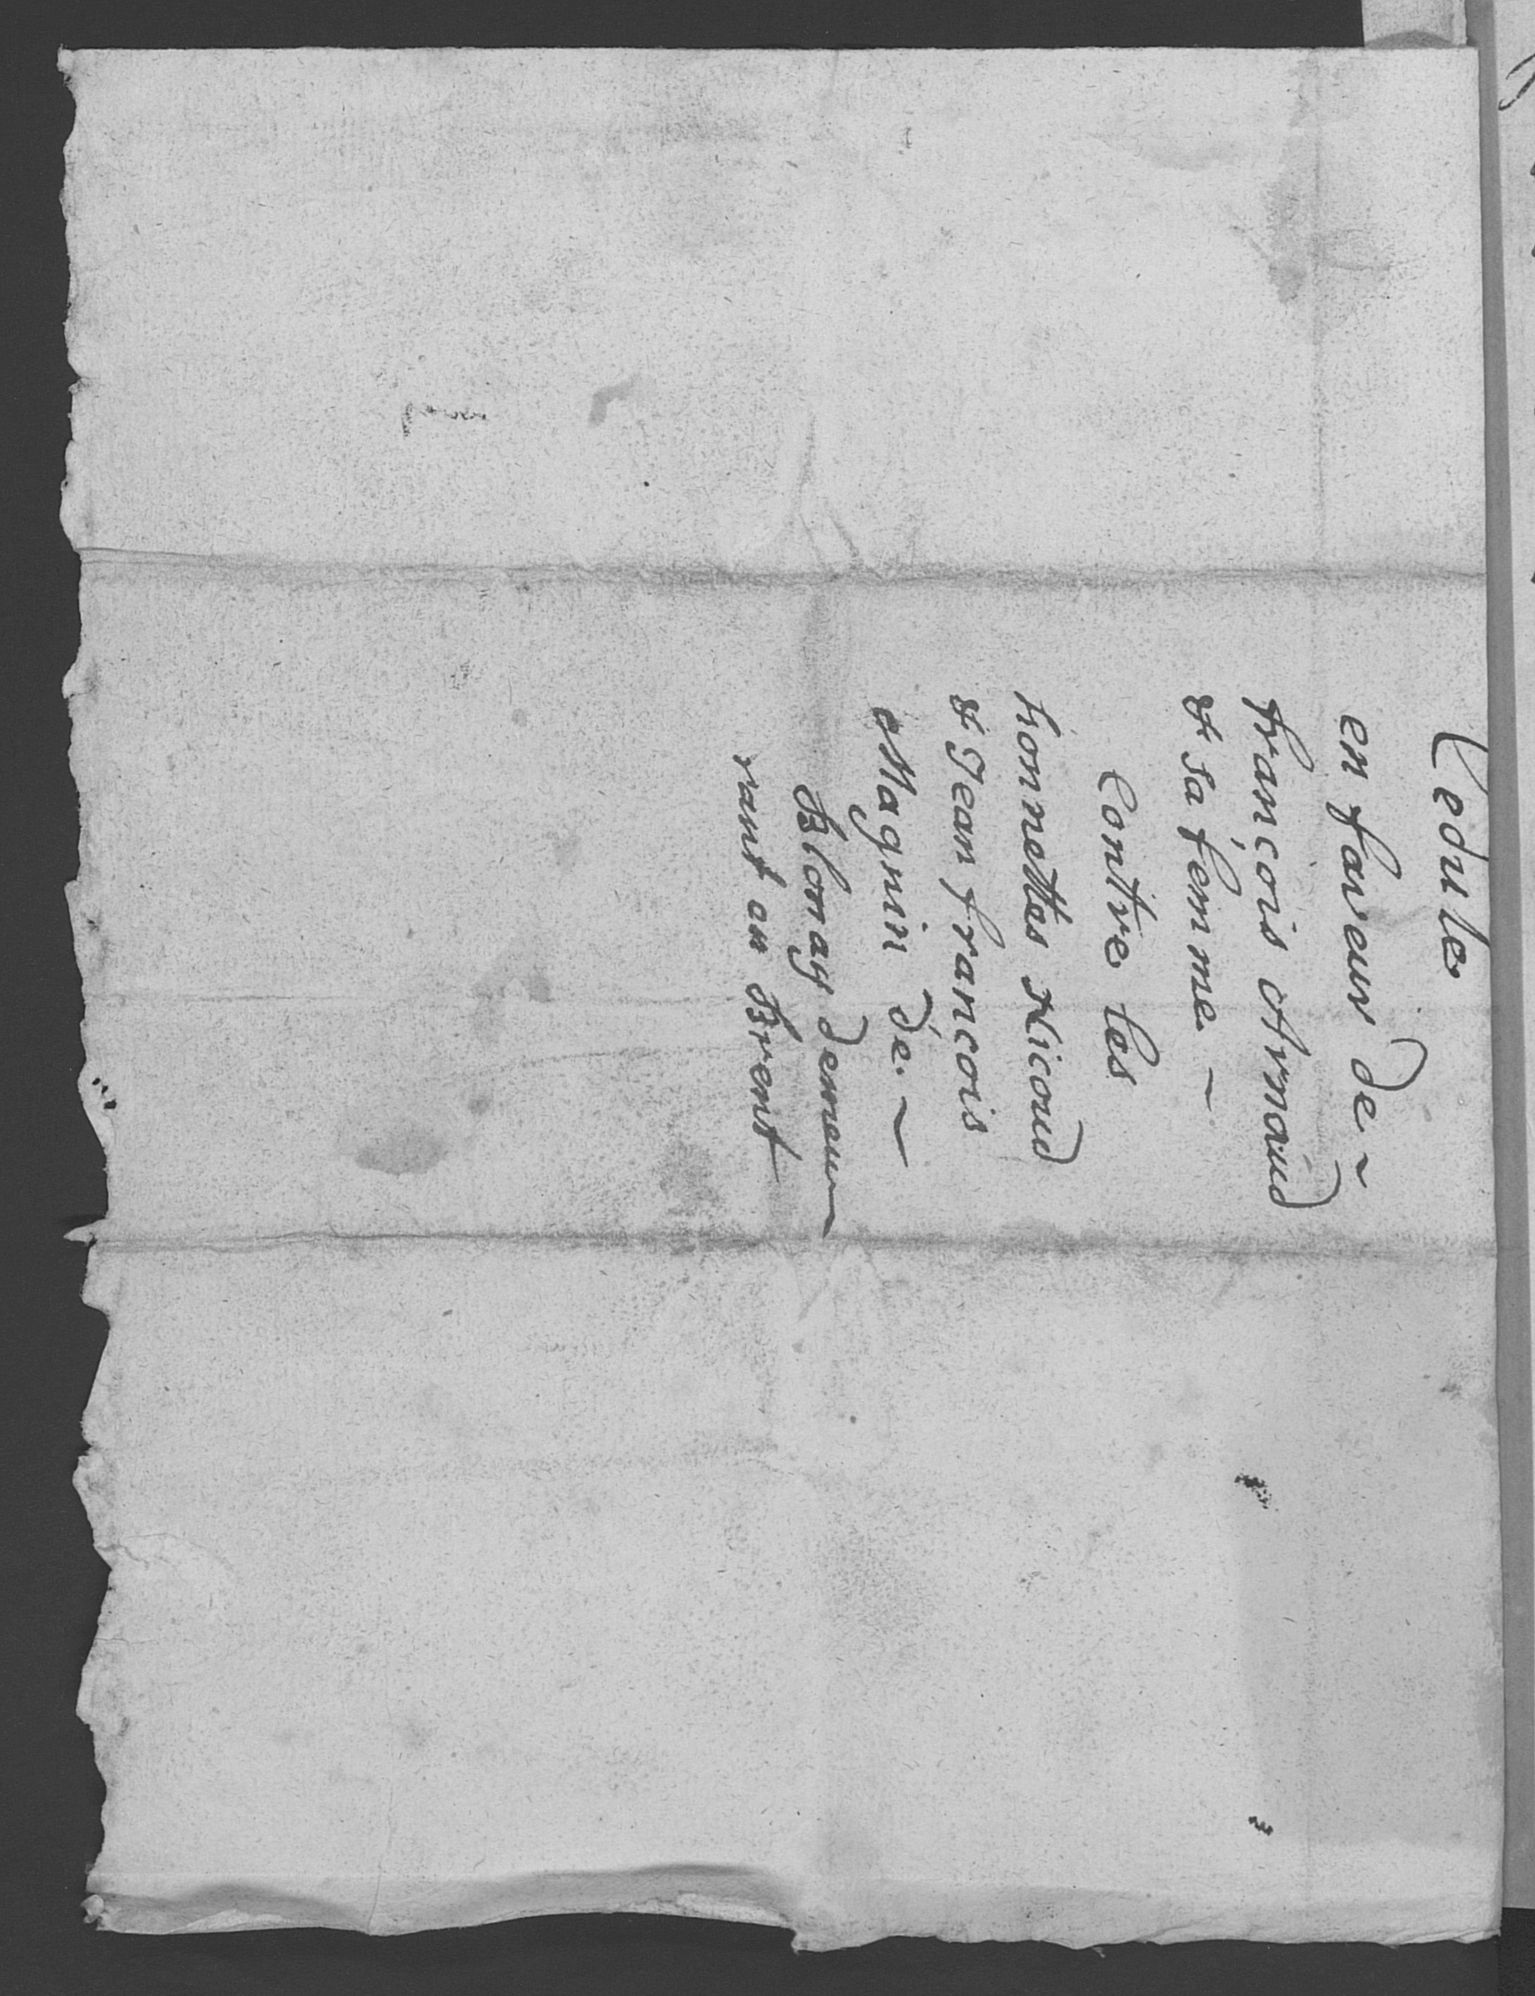 Cedule
en faveur de ~
françois Armaud
& sa femme ~
Contre les
honnettes Nicoud
& Jean francois
Magnin de. ~
Blonay demeu
rant au Brent